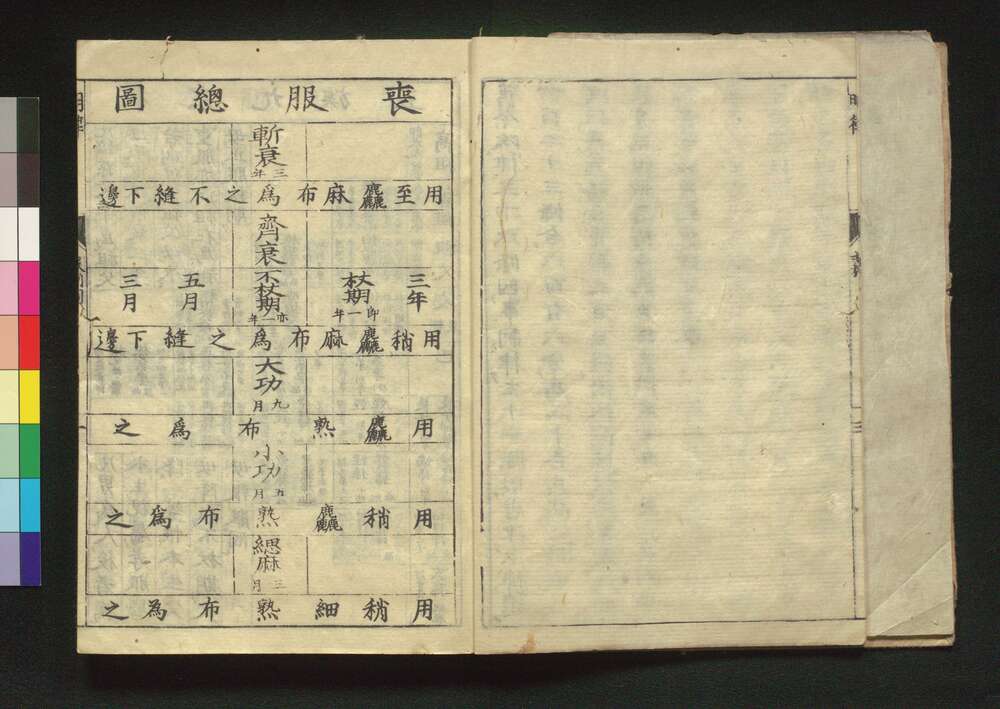 喪服總圖
斬衰
三年
用至麤麻布爲之不縫下邊
齊衰
三年
杖期
卽一年
不杖期
亦一年
五月
三月
用稍麤麻布爲之縫下邊
大功
九月
用麤熟布爲之
小功
五月
用稍麤熟布爲之
緦麻
三月
用稍細熟布為之